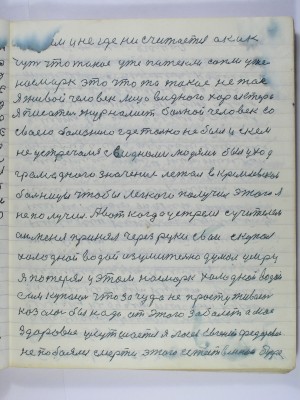 и не где не считается а как
чуть что такое уже
насмарк это что то такое не так
я живой человек лицо видного характера
я писатель журналист больной человек со
своего болезнью где только не был и с кем
не встречался с видными людями был уход
гражданского значения летал в Кремлёвскую
больницу чтобы легкого получил этого я
не получил. А вот когда устроил с учителем
он меня принял через руки свои скупал
холодной водой изумительно думал умру
я потерял у этом насмарк холодной водой
если купали что за чудо не простуживали
козалось бы надо от этого заболеть а мое
здоровие улучшается я Лосев Евгений Федорович
не побоялся смерти этого